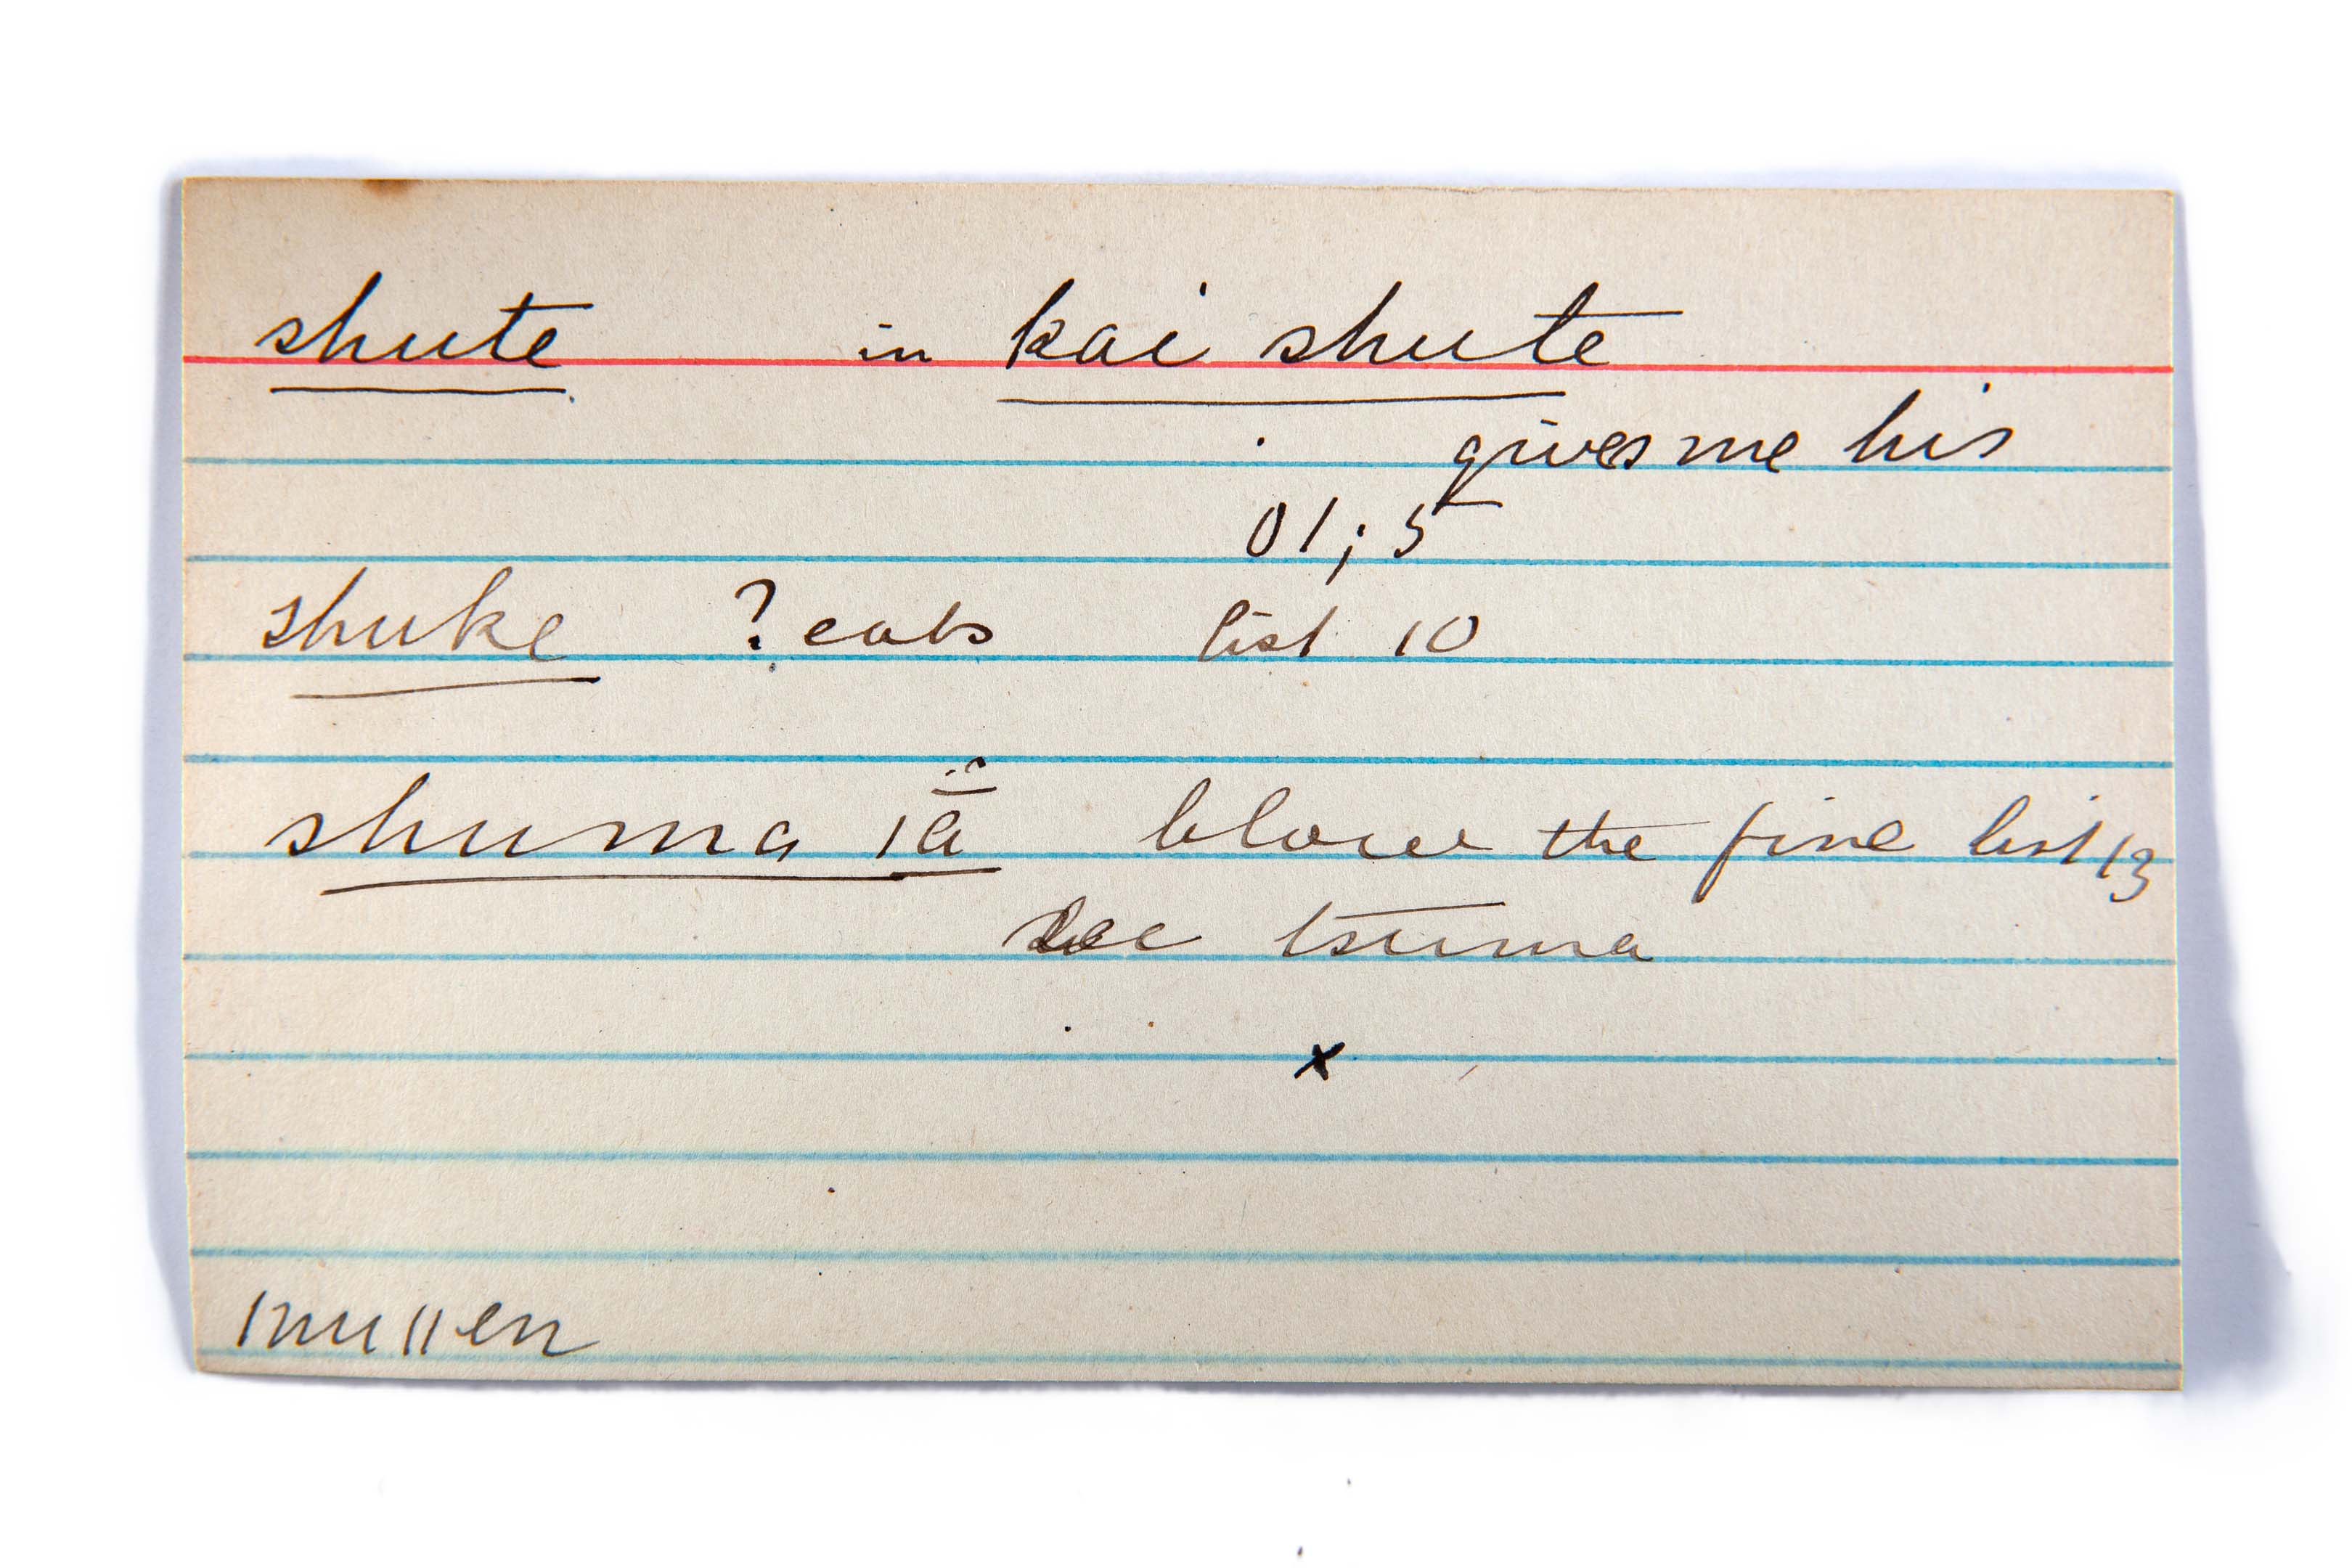 shute in kai shute
gives me his
01; 5
shuke ? eats list 10
shuma ia blow the fire list 13
see tsuma
x